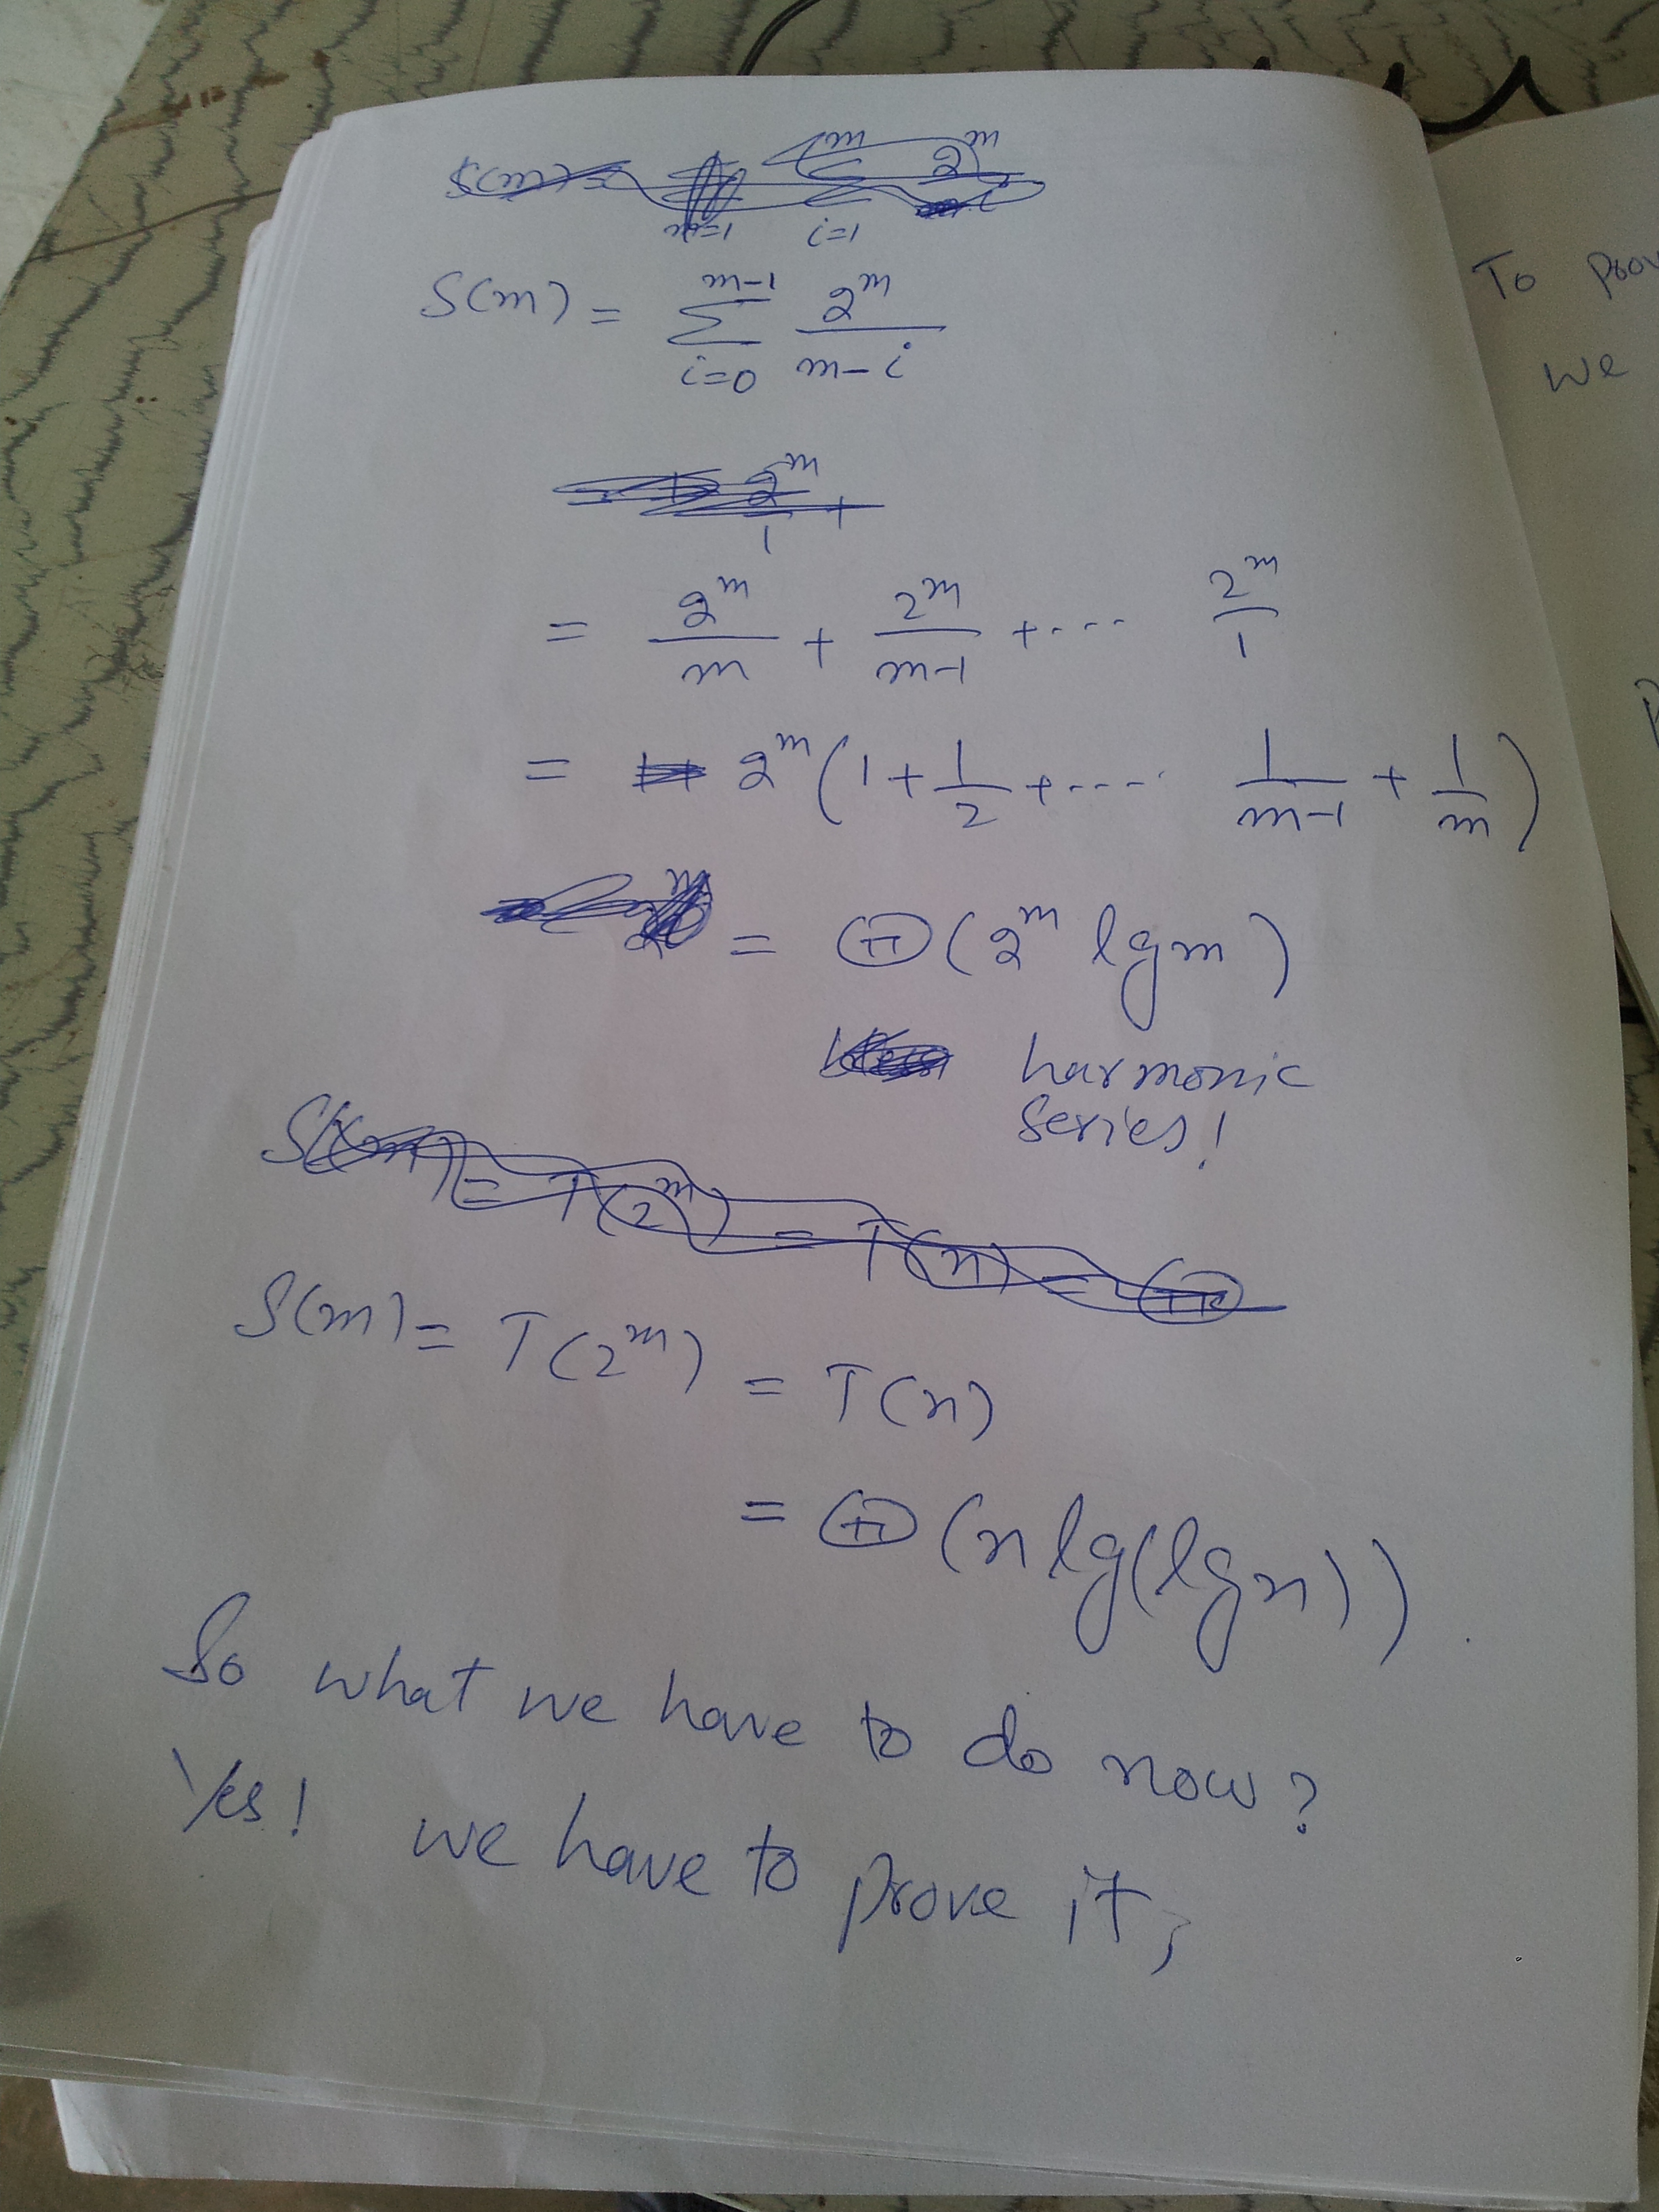 S(m) = Σ_{i=0}^{m-1} 2^m / (m-i)
= 2^m/m + 2^m/(m-1) + ... 2^m/1
= 2^m (1 + 1/2 + ... + 1/(m-1) + 1/m)
= Θ(2^m lg m)
harmonic
series!
S(m) = T(2^m) = T(n)
= Θ(n lg(lg n))
So what we have to do now?
Yes! we have to prove it,
To
we